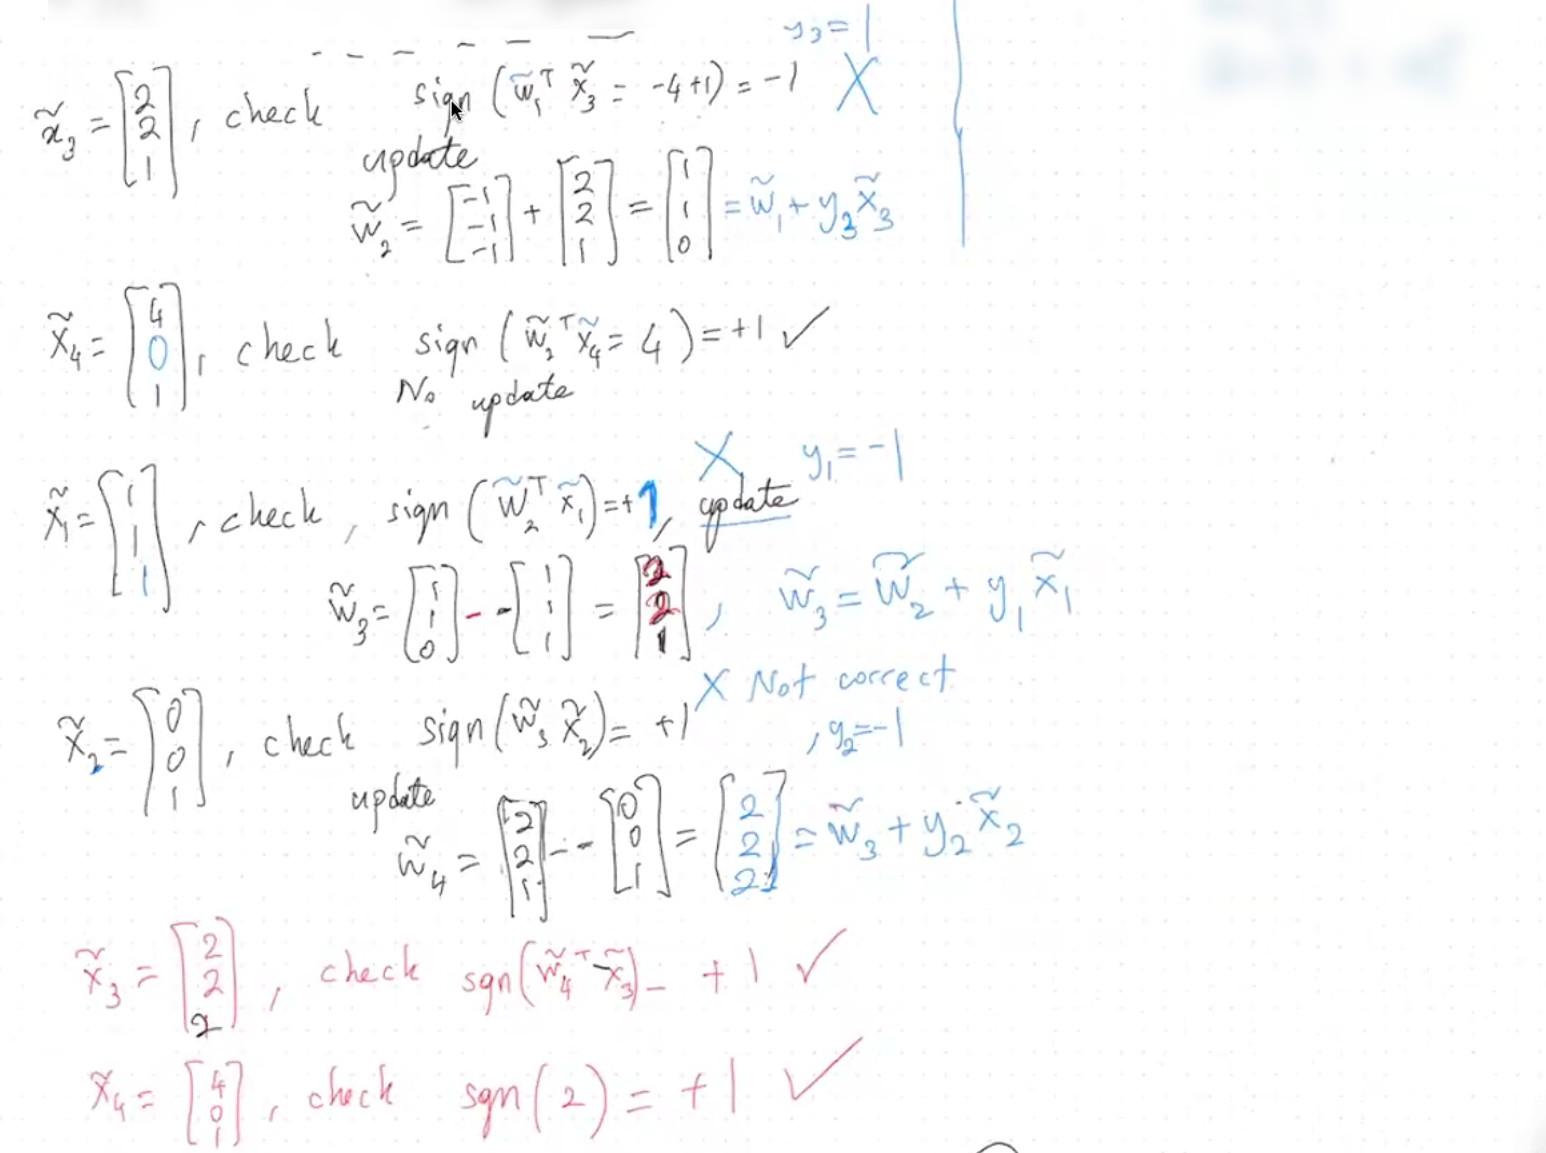 y₃ = 1
x̃₃ = [2 2 1], check sign (w̃₁ᵀ x̃₃ = -4+1) = -1 X
update
w̃₂ = [-1 -1 -1] + [2 2 1] = [1 1 0] = w̃₁ + y₃ x̃₃
x̃₄ = [4 0 1], check sign (w̃₂ᵀ x̃₄ = 4) = +1 ✓
No update
X y₁ = -1
x̃₁ = [1 1 1], check, sign (w̃₂ᵀ x̃₁) = +1, update
w̃₃ = [1 1 0] - - [1 1 1] = [2 2 1], w̃₃ = w̃₂ + y₁ x̃₁
X Not correct
x̃₂ = [0 0 1], check sign (w̃₃ x̃₂) = +1 , y₂ = -1
update
w̃₄ = [2 2 1] - - [0 0 1] = [2 2 2] = w̃₃ + y₂ x̃₂
x̃₃ = [2 2 2], check sgn (w̃₄ᵀ x̃₃) = +1 ✓
x̃₄ = [4 0 1], check sgn (2) = +1 ✓